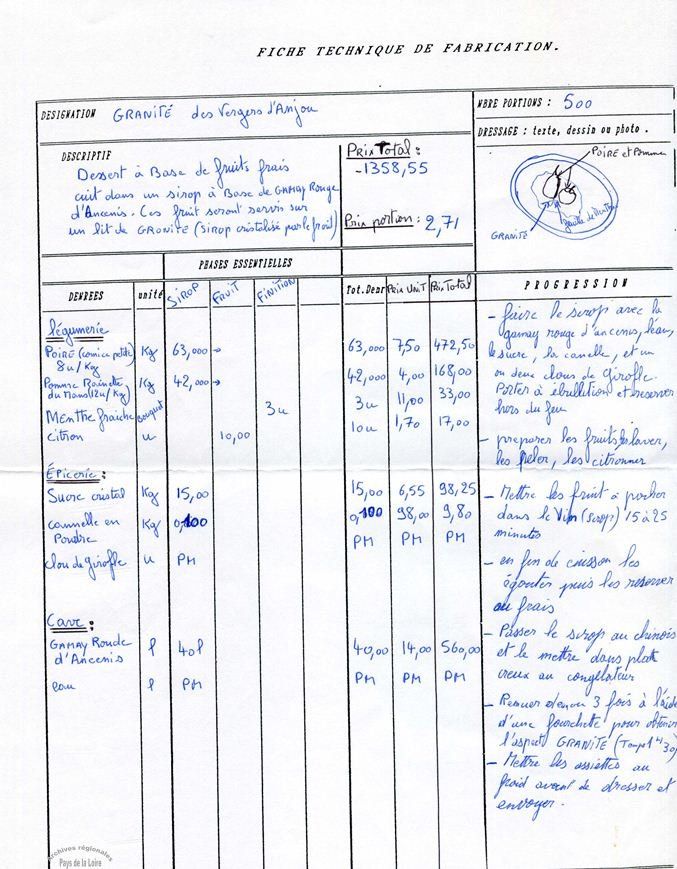 FICHE TECHNIQUE DE FABRICATION.
DESIGNATION GRANITÉ des Vergers d'Anjou
NBRE PORTIONS : 500
DRESSAGE : texte, dessin ou photo .
POIRE et Pomme
feuille de Menthe
GRANITÉ
DESCRIPTIF
Dessert à Base de fruits frais
cuit dans un sirop à Base de GAMAY Rouge
d'Ancenis. Ces fruit seront servis sur
un lit de GRANITÉ (Sirop cristalisé par le froid)
Prix Total :
1358,55
Prix portion : 2,71
PHASES ESSENTIELLES
DENREES unité SIROP FRUIT FINITION Tot.Denr Prix UNIT Prix Total PROGRESSION
légumerie
POIRE (comice petite) Kg 63,000 → 63,000 7,50 472,50
8u/Kg
Pomme Rainette Kg 42,000 → 42,000 4,00 168,00
du Mans (12u/Kg)
Menthe fraiche Bouquet 3u 3u 11,00 33,00
citron u 10,00 10u 1,70 17,00
Épicerie :
Sucre cristal Kg 15,00 15,00 6,55 98,25
cannelle en Kg 0,100 0,100 98,00 9,80
Poudre PM PM PM
clou de Girofle u PM
Cave :
GAMAY Roude l 40l 40,00 14,00 560,00
d'Ancenis
eau l PM PM PM PM
- faire le sirop avec la
gamay rouge d'ancenis, l'eau,
le sucre, la canelle, et un
ou deux clous de Girofle.
Porter à ébullition et reserver
hors du feu
- preparer les fruits, les laver,
les peler, les citronner
- Mettre les fruit à pocher
dans le Vin (sirop) 15 à 25
minutes
- en fin de cuisson les
égouter puis les reserver
au frais
- Passer le sirop au chinois
et le mettre dans plats
creux au congélateur
- Remuer environ 3 fois à l'aide
d'une fourchette pour obtenir
l'aspect GRANITÉ (Temps 1h30)
- Mettre les assiettes au
froid avant de dresser et
envoyer.
Archives régionales
Pays de la Loire